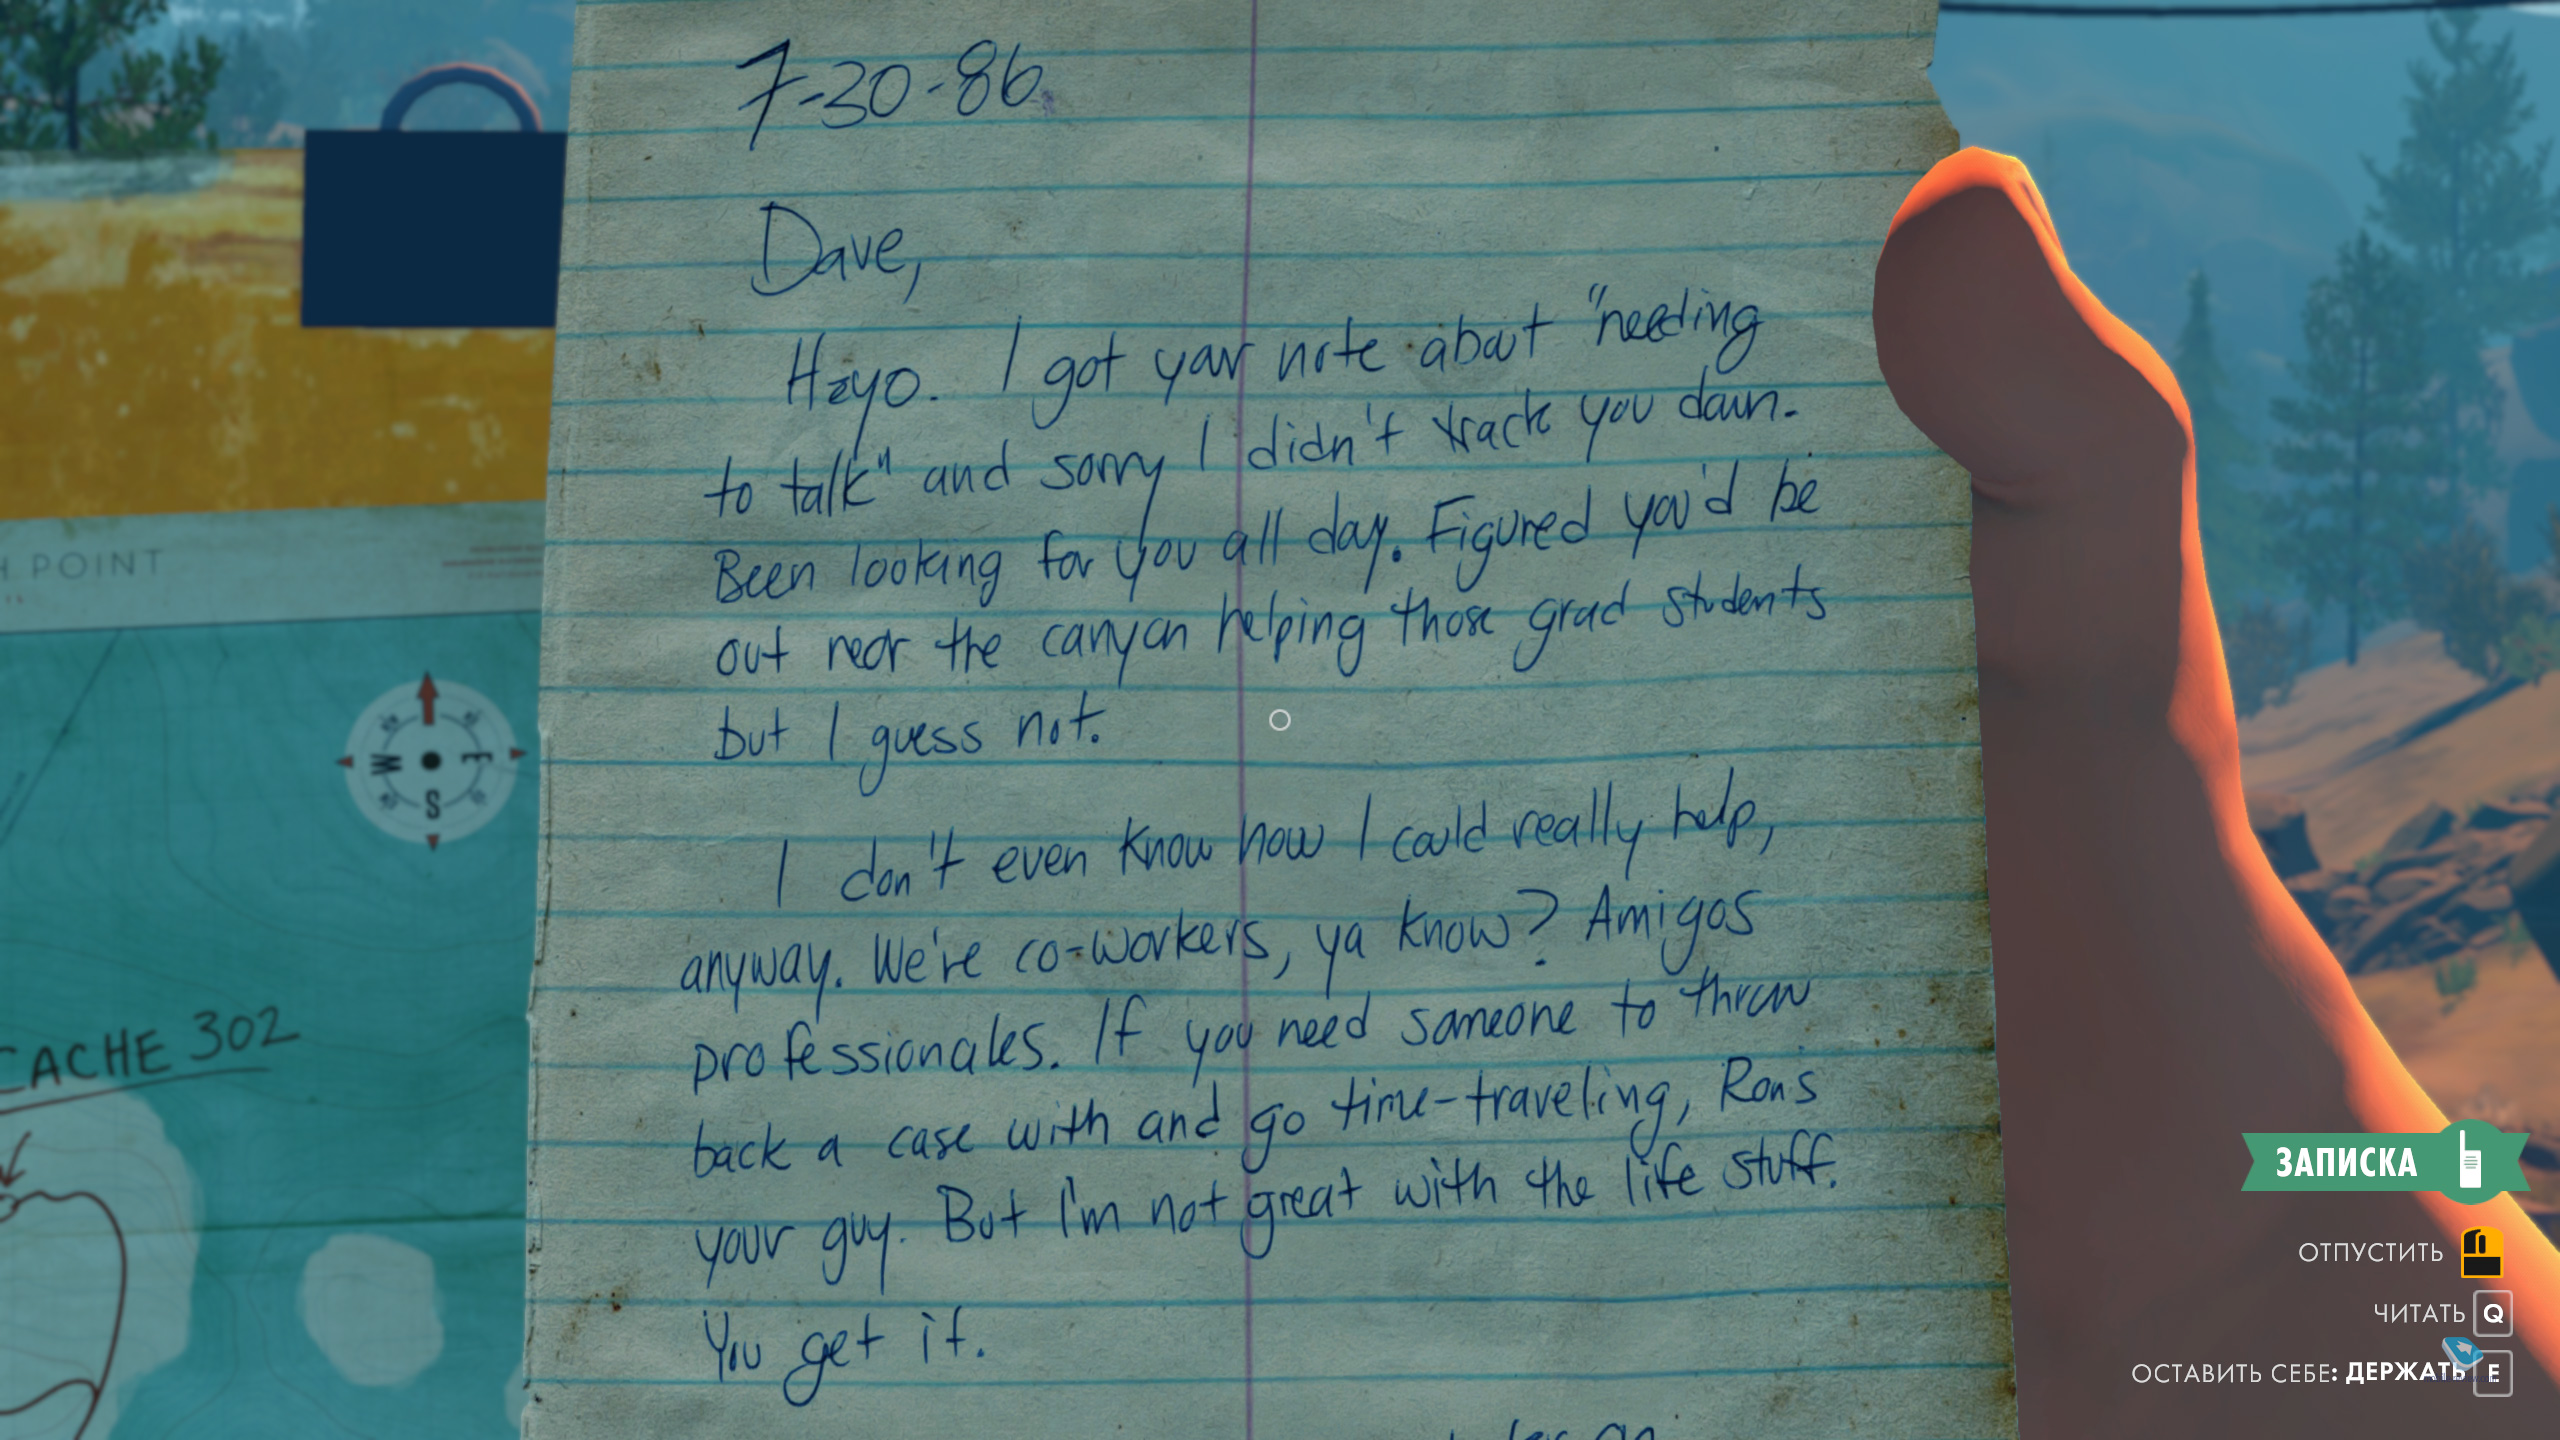 7-30-86
Dave,
Heyo. I got your note about "needing
to talk" and sorry I didn't track you down.
Been looking for you all day. Figured you'd be
out near the canyon helping those grad students
but I guess not.
I don't even know how I could really help,
anyway. We're co-workers, ya know? Amigos
professionales. If you need someone to throw
back a case with and go time-traveling, Ron's
your guy. But I'm not great with the life stuff.
You get it.
H POINT
W E
S
CACHE 302
ЗАПИСКА
ОТПУСТИТЬ
ЧИТАТЬ Q
ОСТАВИТЬ СЕБЕ: ДЕРЖАТЬ E